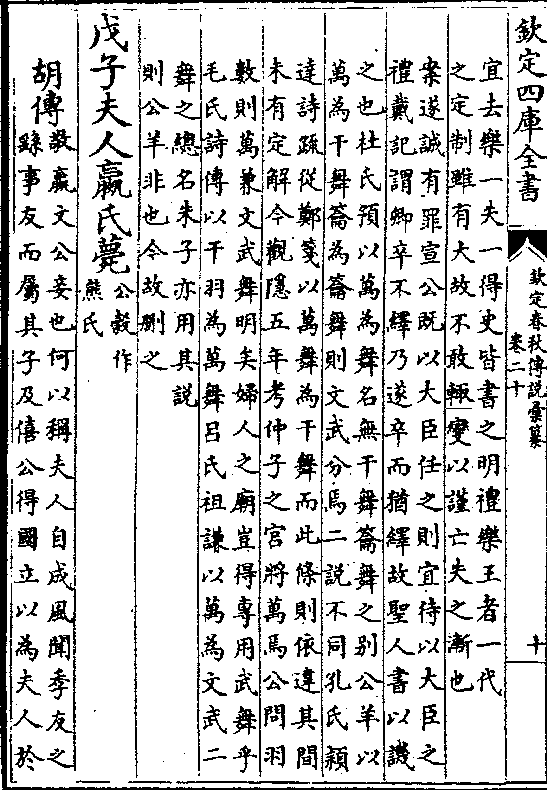 欽定四庫全書
欽定春秋傳說彙纂
卷二十
十
宜去樂一夫一得史皆書之明禮樂王者一代
之定制雖有大故不敢輒變以謹亡失之漸也
案遂誠有罪宣公既以大臣任之則宜待以大臣之
禮戴記謂卿卒不繹乃遂卒而猶繹故聖人書以譏
之也杜氏預以萬為舞名無干舞籥舞之别公羊以
萬為干舞籥為籥舞則文武分焉二說不同孔氏穎
達詩疏從鄭箋以萬舞為干舞而此條則依違其間
未有定解今觀隱五年考仲子之宮將萬焉公問羽
數則萬兼文武舞明矣婦人之廟豈得專用武舞乎
毛氏詩傳以干羽為萬舞吕氏祖謙以萬為文武二
舞之總名朱子亦用其說
則公羊非也今故刪之
戊子夫人嬴氏薨
公穀作
熊氏
胡傳
敬嬴文公妾也何以稱夫人自成風聞季友之
繇事友而屬其子及僖公得國立以為夫人於